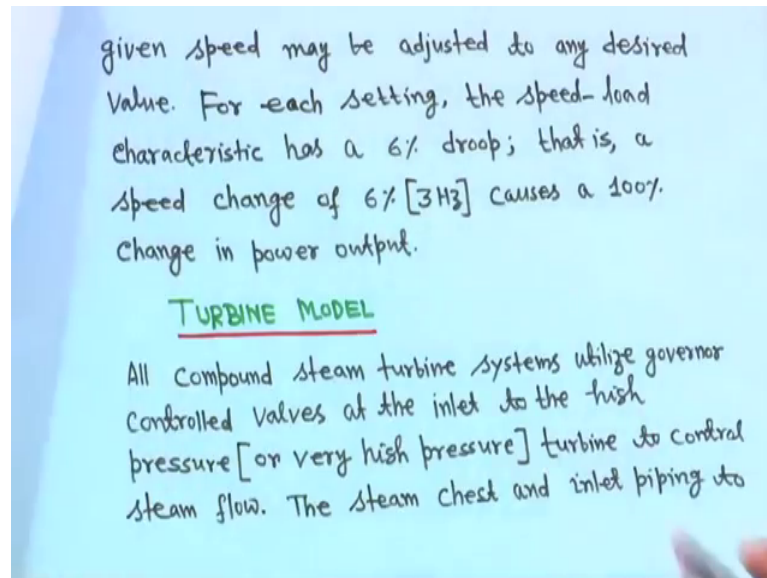 given speed may be adjusted to any desired
Value. For each setting, the speed-load
characteristic has a 6% droop; that is, a
speed change of 6% [3Hz] causes a 100%
change in power output.
TURBINE MODEL
All compound steam turbine systems utilize governor
controlled valves at the inlet to the high
pressure [or very high pressure] turbine to control
steam flow. The steam chest and inlet piping to